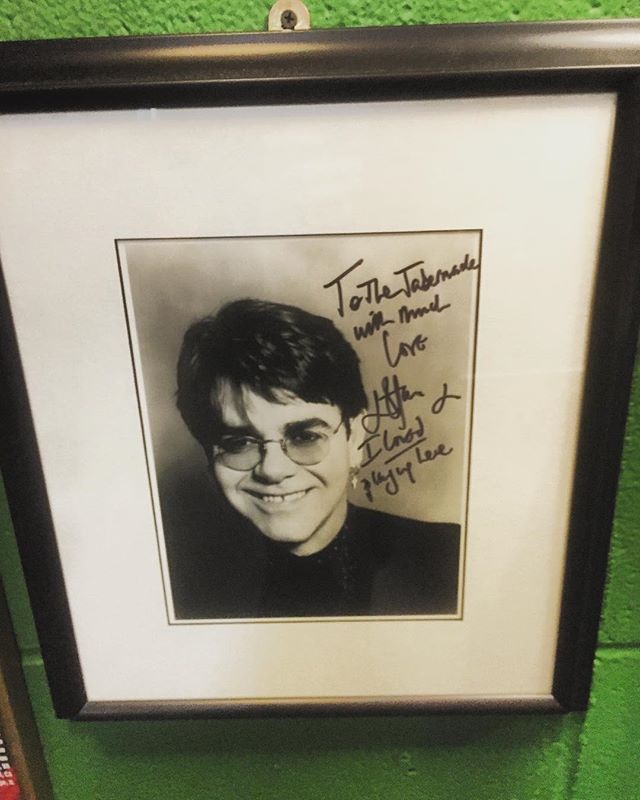 To The Tabernacle
with Much
Love
&
I LOVED
playing here